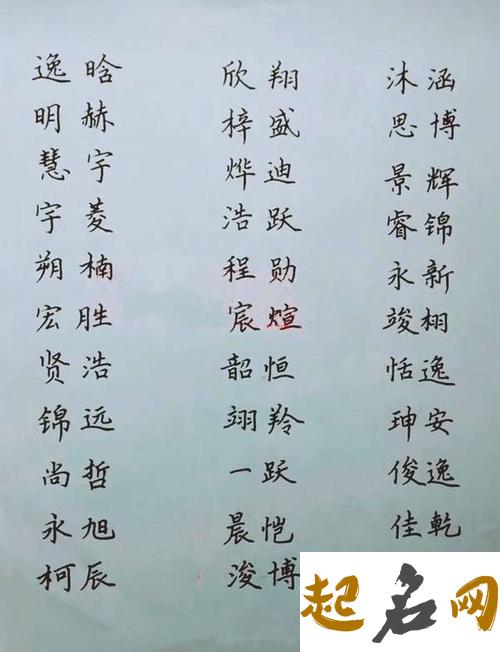 逸晗
明赫
慧宇
宇菱
朔楠
宏胜
贤浩
锦远
尚哲
永旭
柯辰
欣翔
梓盛
烨迪
浩跃
程勋
宸煊
韶恒
翊羚
一跃
晨恺
浚博
沐涵
思博
景辉
睿锦
永新
竣栩
恬逸
珅安
俊逸
佳乾
起名网